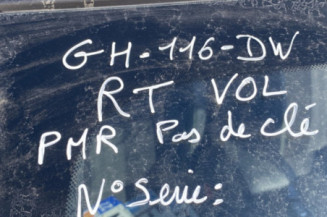 GH-116-DW
RT VOL
PMR Pas de clé
N° Serie: